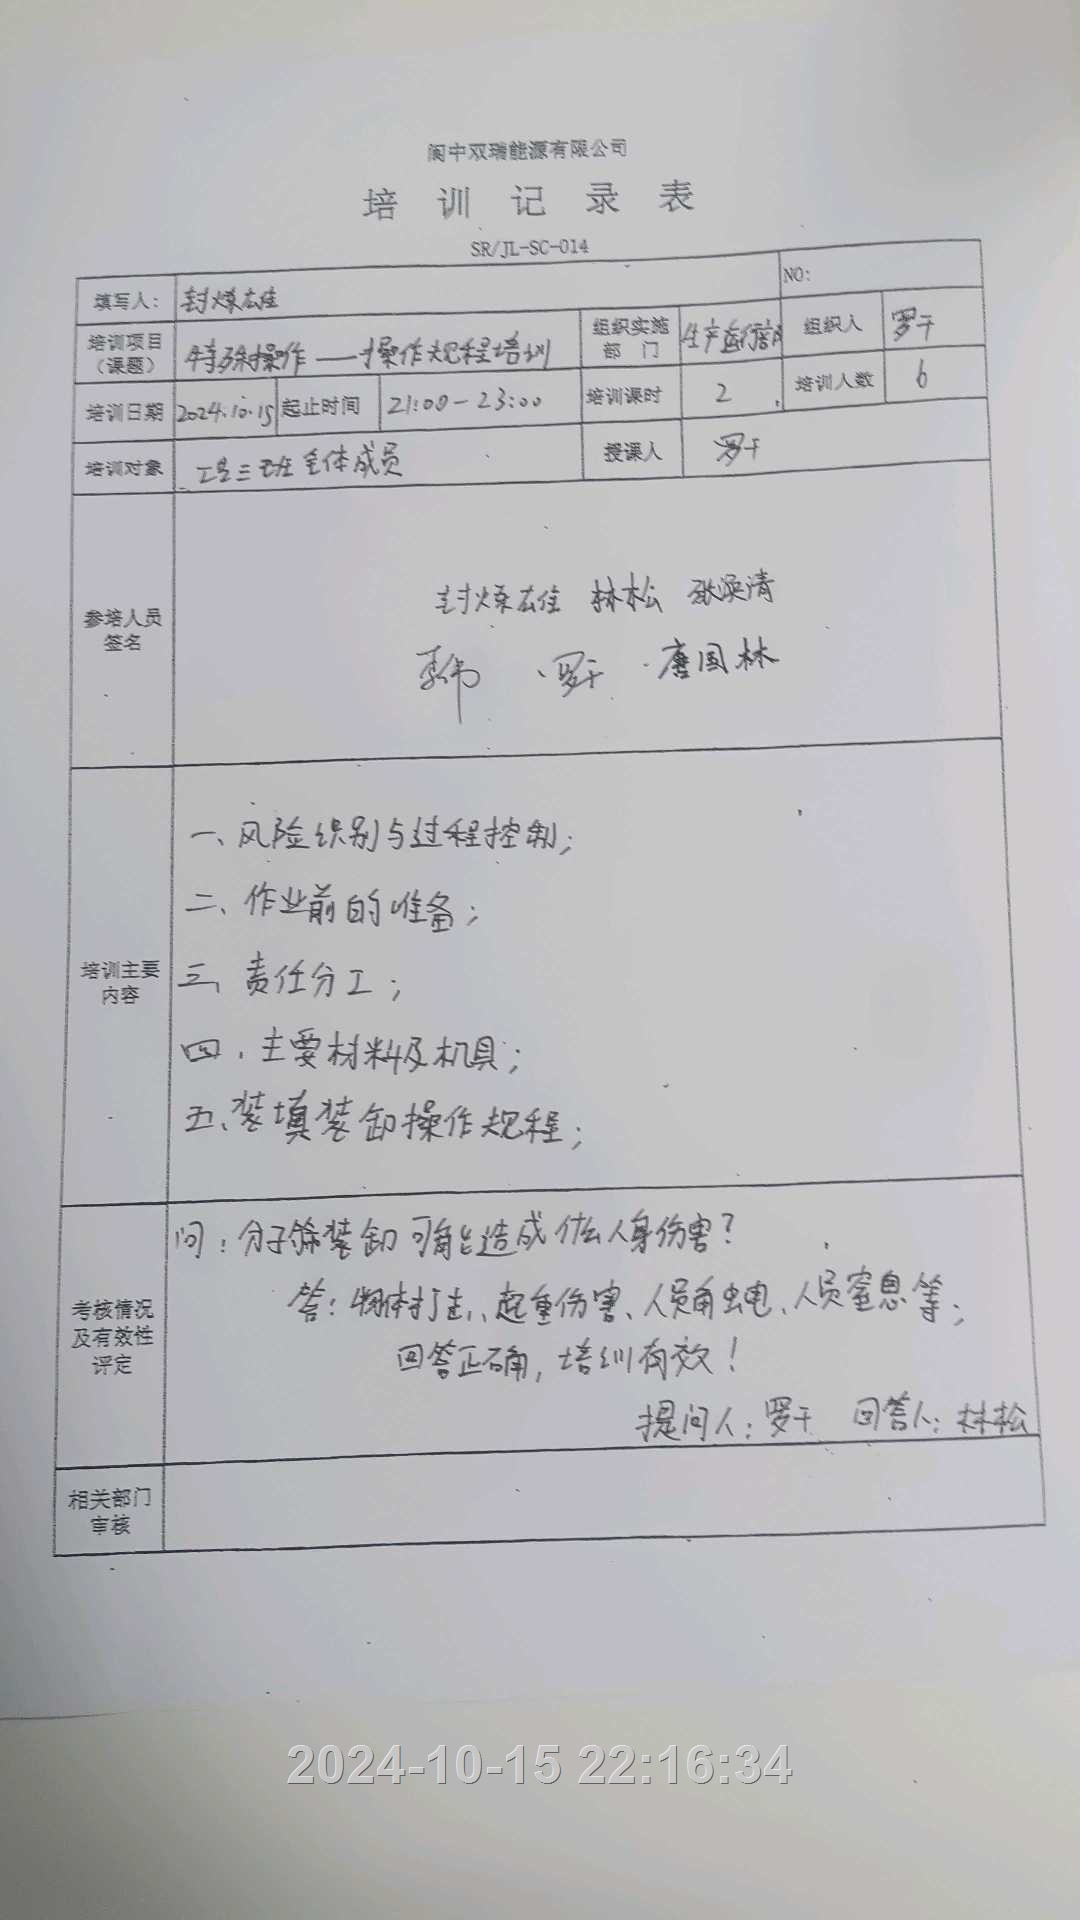 阆中双瑞能源有限公司
培训记录表
SR/JL-SC-014
填写人： 封炼雄 NO:
培训项目（课题） 特殊操作——操作规程培训 组织实施部门 生产运行部 组织人 罗干
培训日期 2024.10.15 起止时间 21:00-23:00 培训课时 2 培训人数 6
培训对象 三班全体成员 授课人 罗干
参培人员签名
封炼雄 林松 张焕清
李伟 罗干 唐国林
培训主要内容
一、风险识别与过程控制；
二、作业前的准备；
三、责任分工；
四、主要材料及机具；
五、装填装卸操作规程；
考核情况及有效性评定
问：分子筛装卸可能造成什么人身伤害？
答：物体打击、起重伤害、人员触电、人员窒息等；
回答正确，培训有效！
提问人：罗干 回答人：林松
相关部门审核
2024-10-15 22:16:34